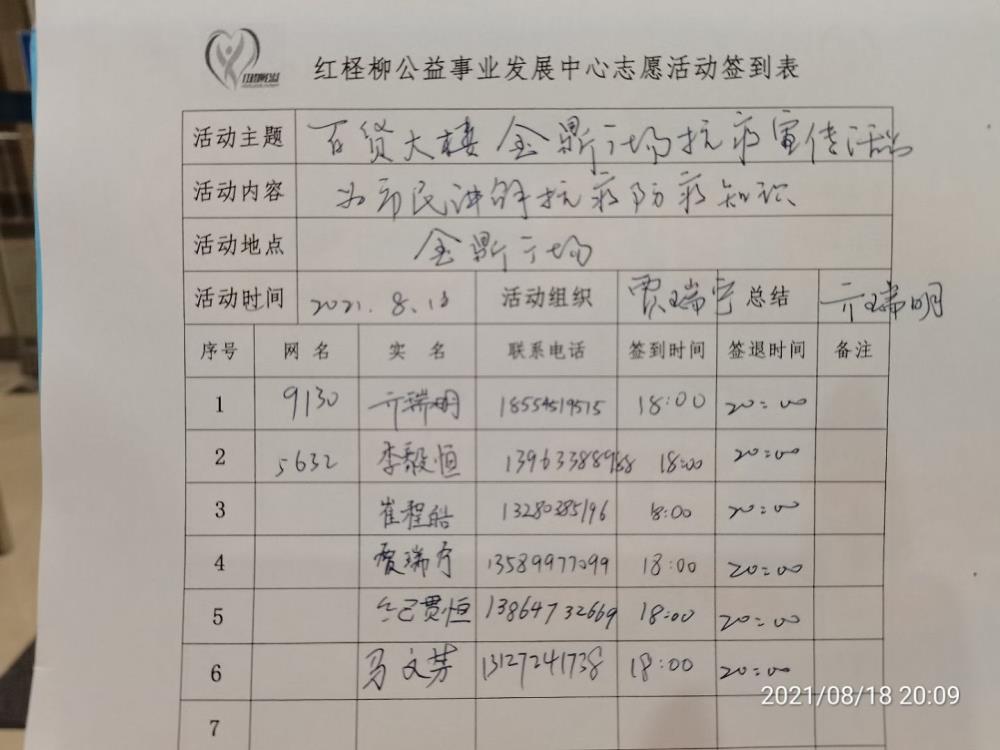 红柽柳公益事业发展中心志愿活动签到表
活动主题 百货大楼金鼎广场抗疫宣传活动
活动内容 为市民讲解抗疫防疫知识
活动地点 金鼎广场
活动时间 2021.8.18 活动组织 贾瑞宇 总结 亓瑞明
序号 网名 实名 联系电话 签到时间 签退时间 备注
1 9130 亓瑞明 18554519515 18:00 20:00
2 5632 李毅恒 13963388988 18:00 20:00
3 崔程皓 13280385196 18:00 20:00
4 贾瑞宇 13589977099 18:00 20:00
5 贯恒 13864732669 18:00 20:00
6 马文芳 13127241738 18:00 20:00
7
2021/08/18 20:09